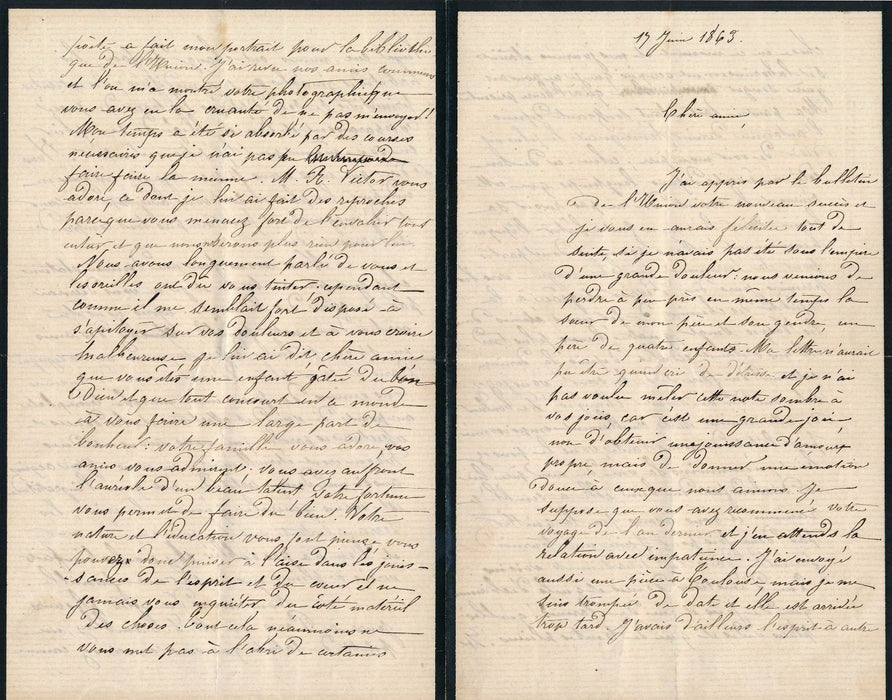 17 Juin 1863.
Chère amie
J'ai appris par le bulletin
de l'Union votre nouveau succès et
je vous en aurais félicitée tout de
suite, si je n'avais pas été sous l'empire
d'une grande douleur : nous venions de
perdre à peu près en même temps la
sœur de mon père et son gendre, un
père de quatre enfants. Ma lettre n'aurait
pu être qu'un cri de détresse et je n'ai
pas voulu mêler cette note sombre à
vos joies, car c'est une grande joie
non d'obtenir une jouissance d'amour
propre mais de donner une émotion
douce à ceux que nous aimons. Je
suppose que vous avez recommencé votre
voyage de l'an dernier et j'en attends la
relation avec impatience. J'ai envoyé
aussi une pièce à Toulouse mais je me
suis trompée de date et elle est arrivée
trop tard. J'avais d'ailleurs l'esprit à autre
a fait mon portrait pour la bibliothè
que de l'Union. J'ai revu nos amis communs
et l'on m'a montré votre photographie que
vous avez eu la cruauté de ne pas m'envoyer !!
Mon temps a été si absorbé par des courses
nécessaires que je n'ai pas pu
faire faire la mienne. M. R. Victor vous
adore ce dont je lui ai fait des reproches
parce que vous menacez fort de l'envahir tout
entier et que nous n'aurons plus rien pour
Nous avons longuement parlé de vous et
les oreilles ont dû vous tinter. cependant
comme il me semblait fort disposé à
s'apitoyer sur vos douleurs et à vous croire
malheureuse je lui ai dit, chère amie
que vous êtes une enfant gâtée du bon
Dieu et que tout concourt en ce monde
à vous faire une large part de
bonheur : votre famille vous adore, vos
amis vous admirent. vous avez au front
l'auréole d'un beau talent. votre fortune
vous permet de faire du bien. Votre
nature et l'éducation vous font pieuse vous
pouvez donc puiser à l'aise dans les jouis-
sances de l'esprit et du cœur et ne
jamais vous inquiéter du côté matériel
des choses. Tout cela néanmoins ne
vous met pas à l'abri de certaines